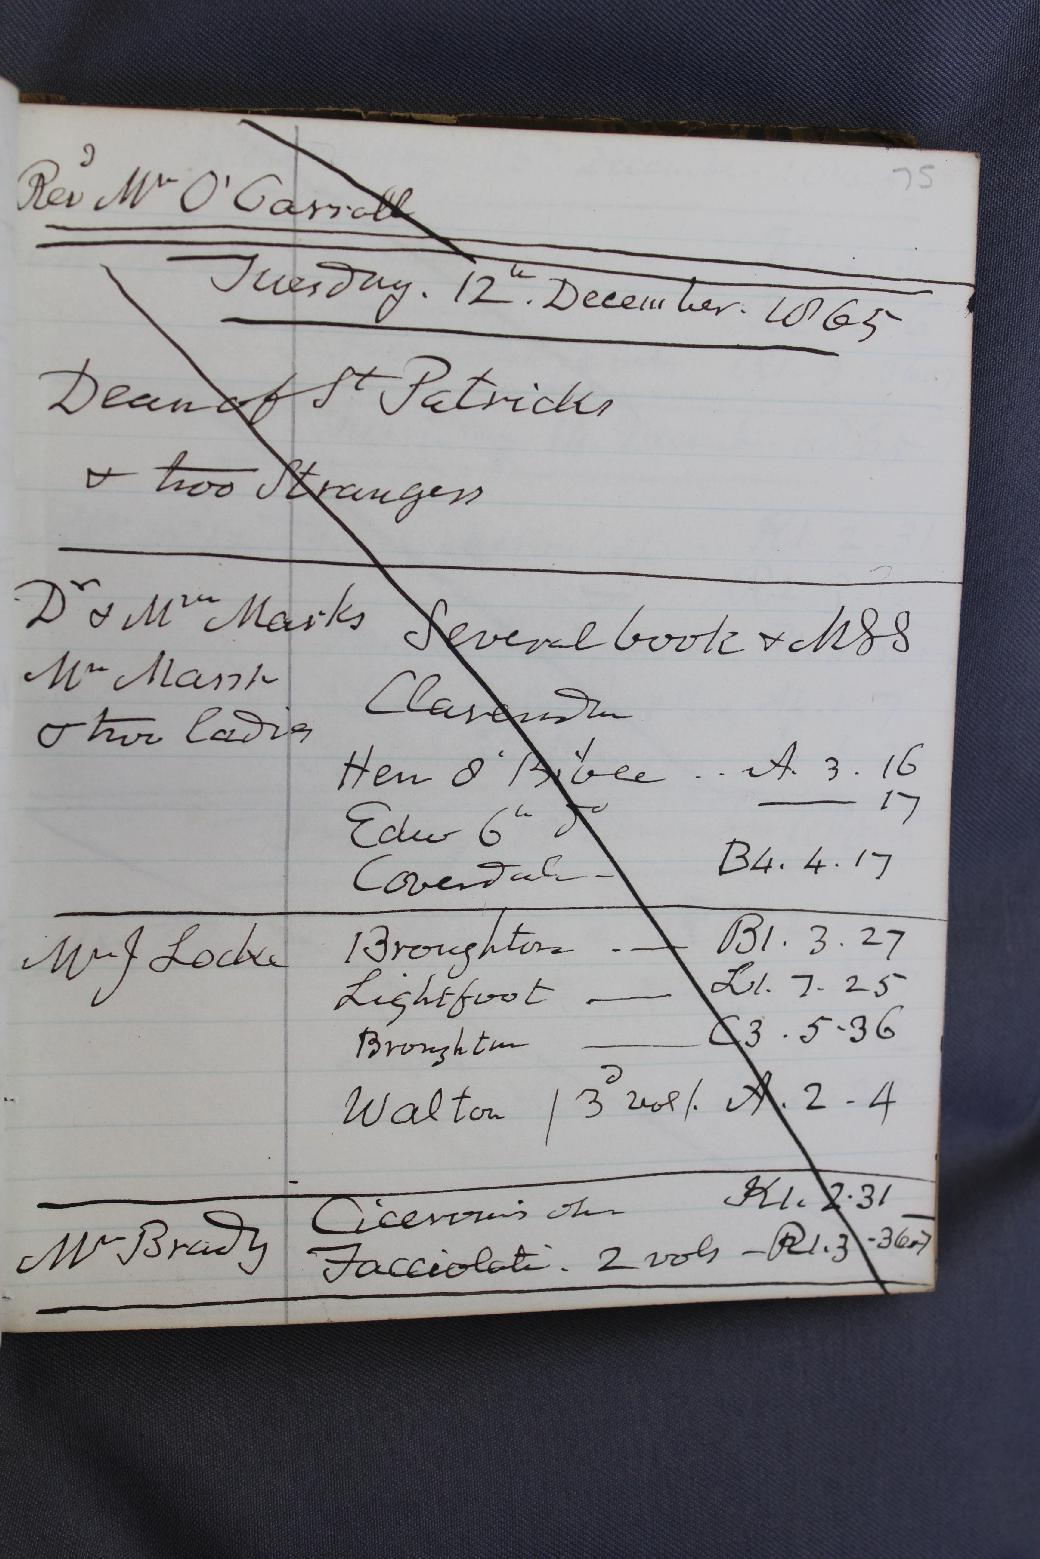 75
Revd Mr O'Carroll
Tuesday. 12th. December. 1865
Dean of St Patricks
& two Strangers
Dr & Mrs Marks Several book & MSS
Mr Marsh Clarendon
& two ladies
Hen 8th Bible .. A. 3. 16
Edw 6th Do —— 17
Coverdale – B4. 4. 17
Mr J Locke Broughton . — B1. 3. 27
Lightfoot — L1. 7. 25
Broughton —— C3. 5-36
Walton / 3d vol/. A. 2-4
Ciceronis K1. 2.31
Mr Brady Facciolati. 2 vols – R1.3 -36